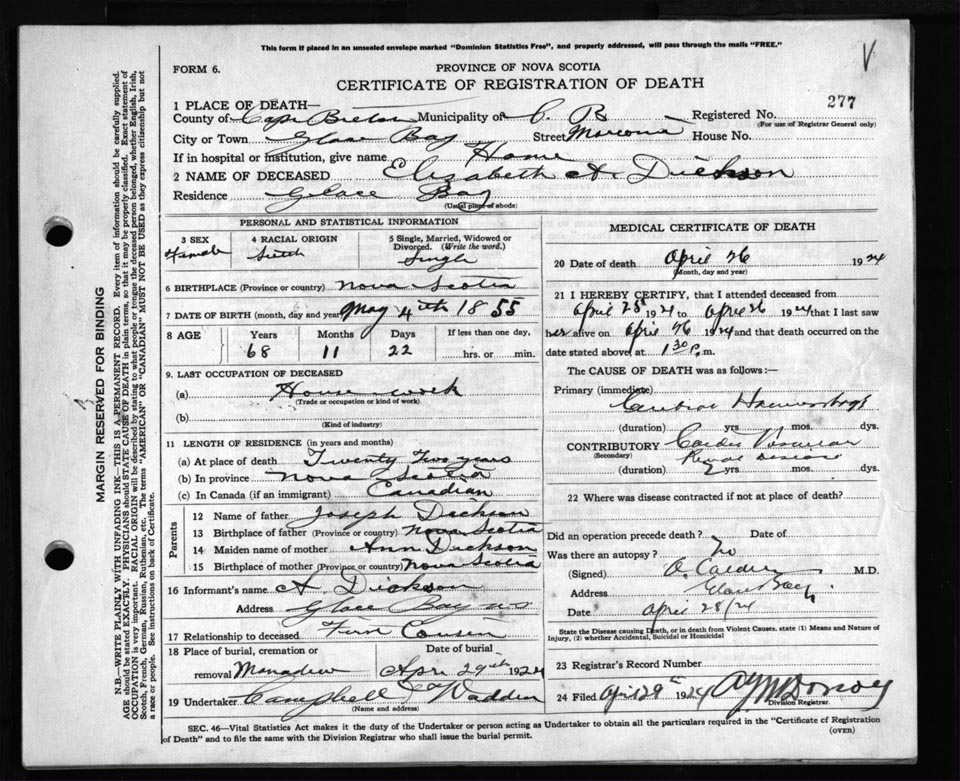 This form if placed in an unsealed envelope marked "Dominion Statistics Free", and properly addressed, will pass through the mails "FREE."
V
FORM 6. PROVINCE OF NOVA SCOTIA
CERTIFICATE OF REGISTRATION OF DEATH
277
1 PLACE OF DEATH—
County of Cape Breton Municipality of C. B Registered No.
(For use of Registrar General only)
City or Town Glace Bay Street Marconi House No.
If in hospital or institution, give name Home
2 NAME OF DECEASED Elizabeth A. Dickson
Residence Glace Bay
(Usual place of abode)
PERSONAL AND STATISTICAL INFORMATION
3 SEX 4 RACIAL ORIGIN 5 Single, Married, Widowed or Divorced. (Write the word.)
Female Single
6 BIRTHPLACE (Province or country) Nova Scotia
7 DATE OF BIRTH (month, day and year) May 4th 1855
8 AGE Years Months Days If less than one day,
68 11 22 hrs. or min.
9. LAST OCCUPATION OF DECEASED
(a) House work
(Trade or occupation or kind of work)
(b)
(Kind of industry)
11 LENGTH OF RESIDENCE (in years and months)
(a) At place of death Twenty Two years
(b) In province Nova Scotia
(c) In Canada (if an immigrant) Canadian
Parents
12 Name of father Joseph Dickson
13 Birthplace of father (Province or country) Nova Scotia
14 Maiden name of mother Ann Dickson
15 Birthplace of mother (Province or country) Nova Scotia
16 Informant's name A. Dickson
Address Glace Bay NS
17 Relationship to deceased First Cousin
18 Place of burial, cremation or removal Date of burial
Apr 29th 1924
19 Undertaker Campbell & Wadden
(Name and address)
MEDICAL CERTIFICATE OF DEATH
20 Date of death April 26 1924
(Month, day and year)
21 I HEREBY CERTIFY, that I attended deceased from
April 25 1924 to April 26 1924 that I last saw
her alive on April 26 1924 and that death occurred on the
date stated above, at 1 30 P. m.
The CAUSE OF DEATH was as follows:—
Primary (immediate)
Cerebral Haemorrhage
(duration) yrs. mos. dys.
CONTRIBUTORY Cardio Vascular
(Secondary) Renal Disease
(duration) 2 yrs. mos. dys.
22 Where was disease contracted if not at place of death?
Did an operation precede death? Date of
Was there an autopsy? No
(Signed) M.D.
Address Glace Bay
Date April 28/24
State the Disease causing Death, or in death from Violent Causes. state (1) Means and Nature of Injury, (2) whether Accidental, Suicidal or Homicidal
23 Registrar's Record Number
24 Filed April 28th 1924
Division Registrar.
SEC. 46—Vital Statistics Act makes it the duty of the Undertaker or person acting as Undertaker to obtain all the particulars required in the "Certificate of Registration
of Death" and to file the same with the Division Registrar who shall issue the burial permit.
(OVER)
MARGIN RESERVED FOR BINDING
N.B.—WRITE PLAINLY WITH UNFADING INK—THIS IS A PERMANENT RECORD. Every item of information should be carefully supplied.
AGE should be stated EXACTLY. PHYSICIANS should STATE CAUSE OF DEATH in plain terms, so that it may be properly classified. Exact statement of
OCCUPATION is very important. RACIAL ORIGIN will be described by stating to what people or tongue the deceased person belonged, whether English, Irish,
Scotch, French, German, Russian, Ruthenian, etc. The terms "AMERICAN" OR "CANADIAN" MUST NOT BE USED as they express citizenship but not
a race or people. See instructions on back of Certificate.